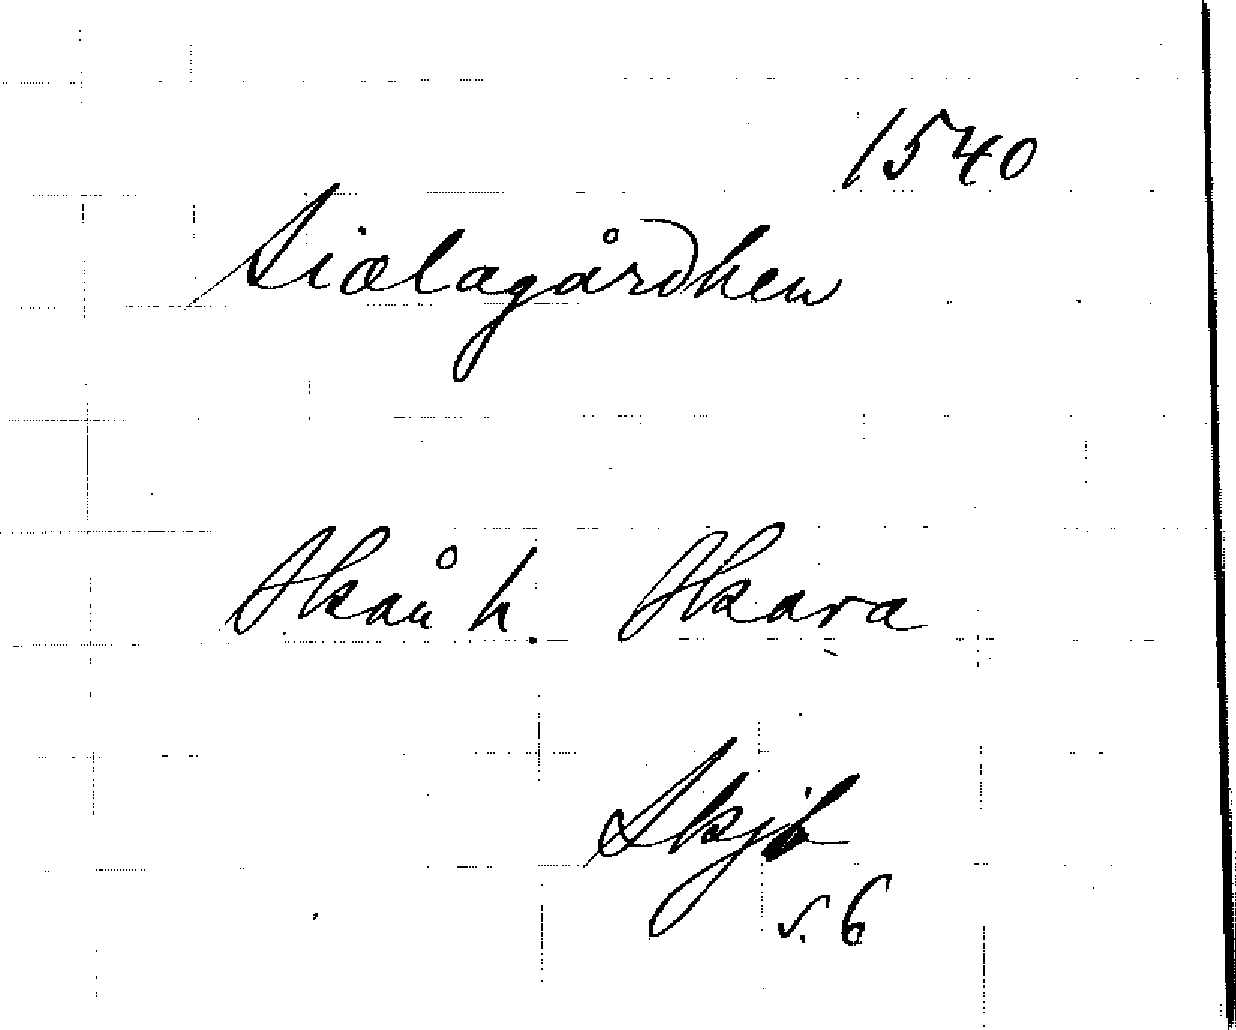 1540
Siælagårdhen
Skån h. Skara
Skjb
s. 6